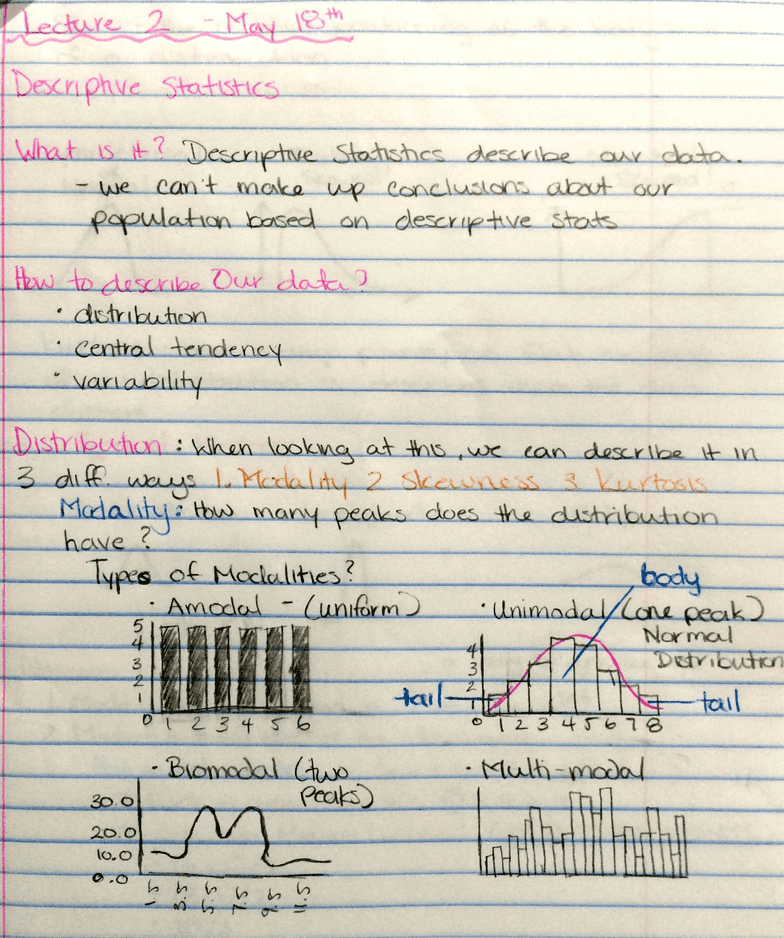 Lecture 2 - May 18th
Descriptive Statistics
What is it? Descriptive Statistics describe our data.
- we can't make up conclusions about our
population based on descriptive stats
How to describe Our data?
· distribution
· central tendency
· variability
Distribution: When looking at this, we can describe it in
3 diff. ways 1. Modality 2 Skewness 3 Kurtosis
Modality: How many peaks does the distribution
have?
Types of Modalities?
· Amodal - (uniform)
5
4
3
2
1
0 1 2 3 4 5 6
· Unimodal (one peak)
Normal
Distribution
body
tail
tail
4
3
2
1
0 1 2 3 4 5 6 7 8
· Biomodal (two
peaks)
30.0
20.0
10.0
0.0
1.5 3.5 5.5 7.5 9.5 11.5
· Multi-modal